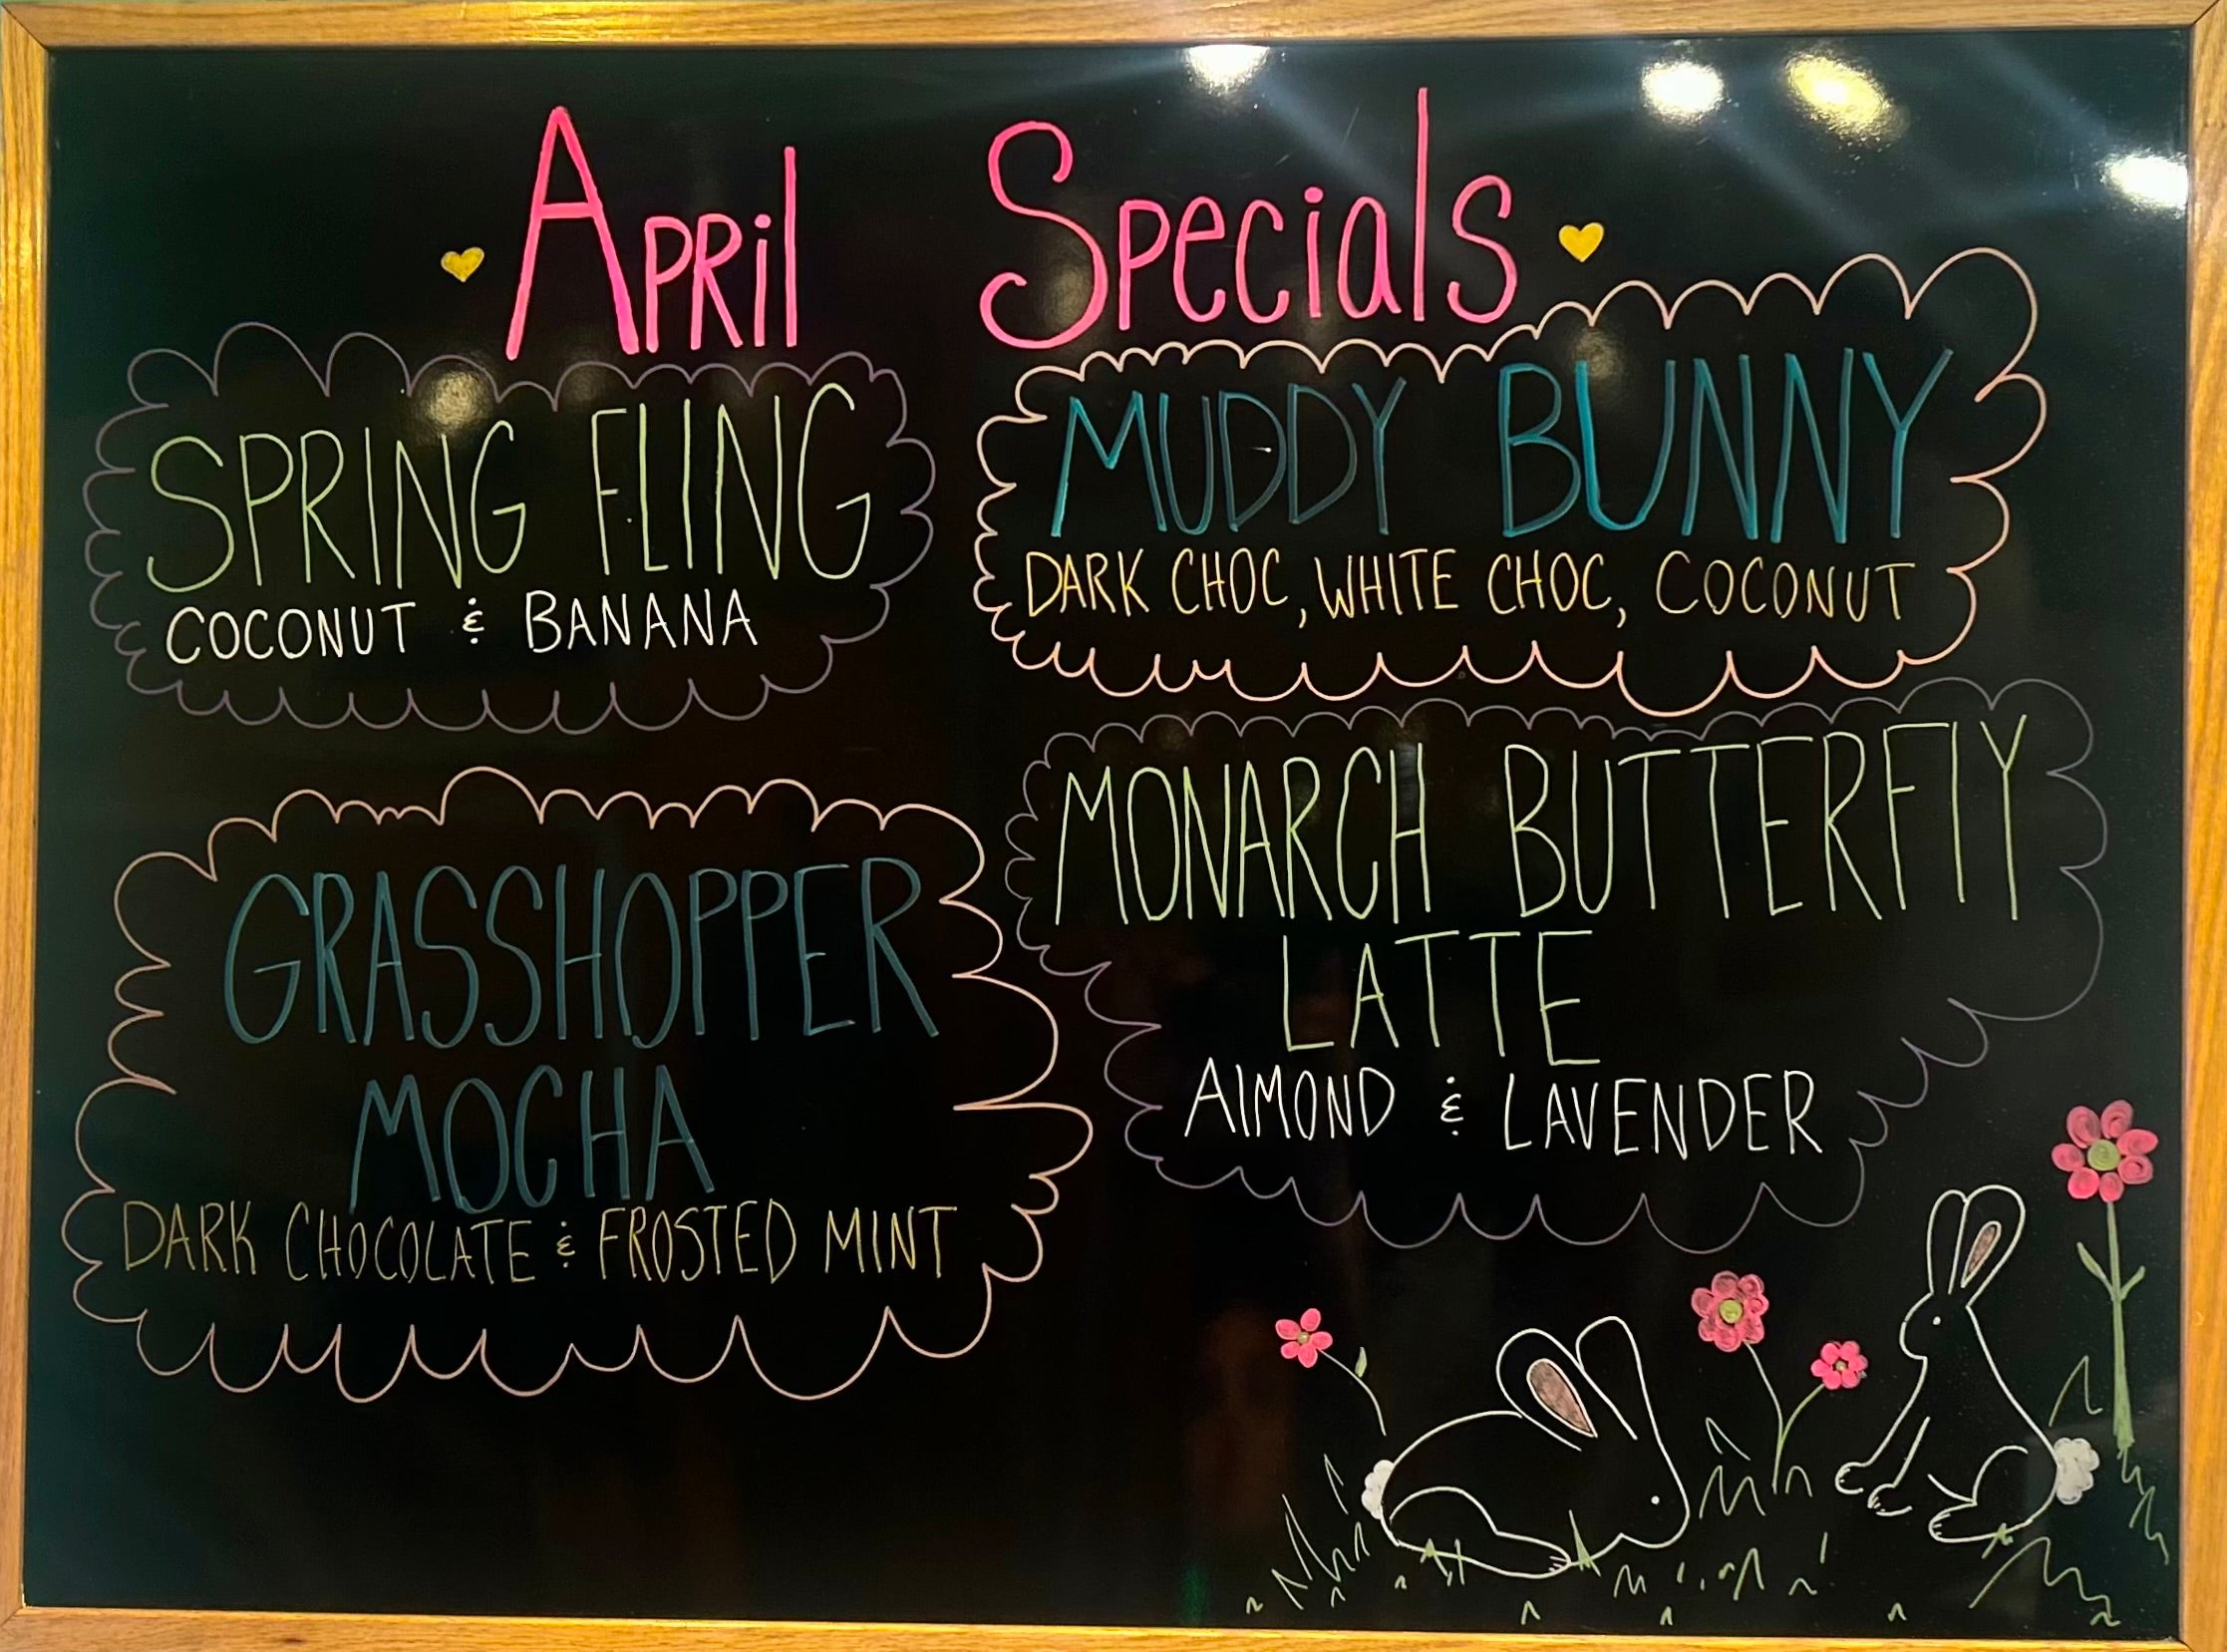 April Specials
SPRING FLING
COCONUT & BANANA
MUDDY BUNNY
DARK CHOC, WHITE CHOC, COCONUT
GRASSHOPPER
MOCHA
DARK CHOCOLATE & FROSTED MINT
MONARCH BUTTERFlY
LATTE
AlMOND & LAVENDER